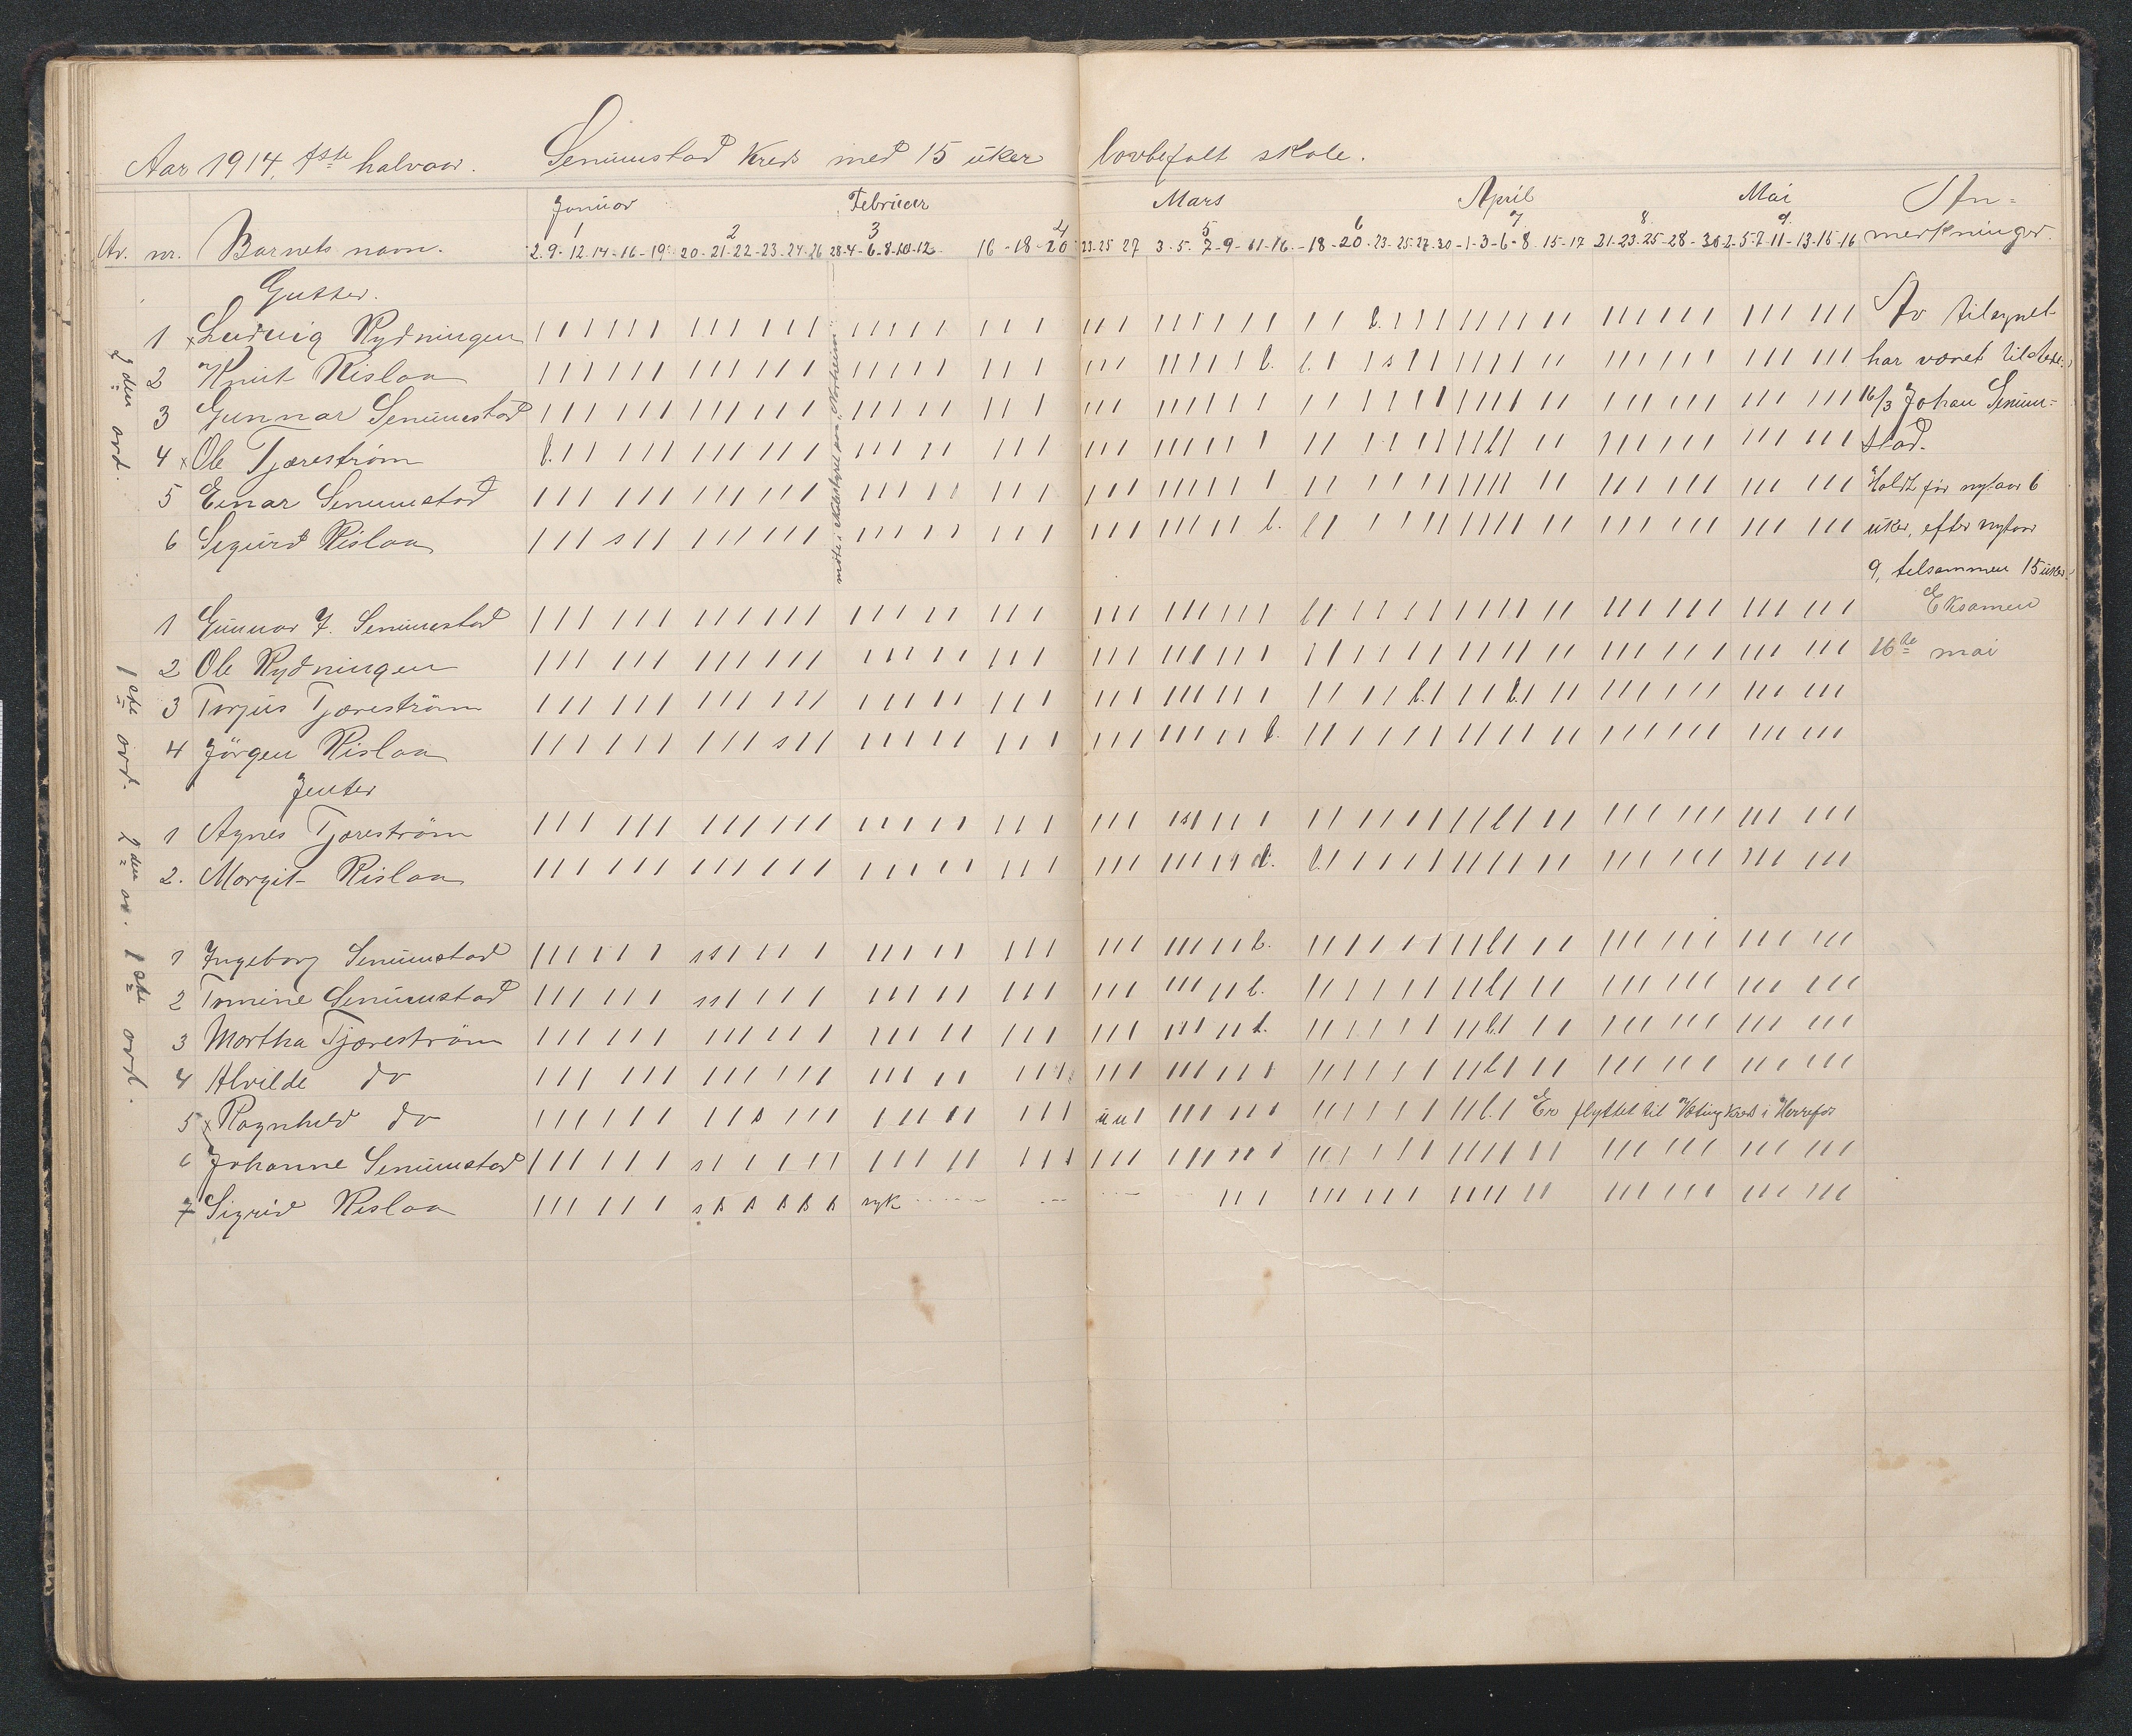 Aar 1914, 1ste halvaar. Senumstad Kreds med 15 uker lovbefalt skole.
Januar Februar Mars April Mai An-
1 2 3 4 5 6 7 8. 9.
Av. nr. Barnets navn. 2. 9- 12. 14- 16- 19- 20- 21- 22- 23- 24- 26 28- 4- 6- 8- 10- 12 16- 18- 20 23- 25 27 3- 5. 7- 9- 11- 16- 18- 20- 23- 25- 27- 30- 1- 3- 6- 8 15- 17 21- 23- 25- 28- 30 2- 5- 7- 11- 13- 15- 16 merkninger.
Gutter.
2den avd.
1 x Ludvig Rydningen Av tilsynet
2 Knut Rislaa har været tilstede
3 Gunnar Senumstad 16/3 Johan Senum-
4 x Ole Tjæreström stad.
5 Einar Senumstad Holdt før nytaar 6
6 Sigurd Rislaa uker, efter nytaar
9, tilsammen 15 uker.
møte i skolestyret paa Norheim
Eksamen
16de mai
1ste avd.
1 Gunnar J. Senumstad
2 Ole Rydningen
3 Torjus Tjæreström
4 Jörgen Rislaa
Jenter
2den av.
1 Agnes Tjæreström
2. Margit Rislaa
1ste avd.
1 Ingeborg Senumstad
2 Tomine Senumstad
3 Martha Tjæreström
4 Alvilde do
5 x Ragnhild do Er flyttet til Væting Kreds i Herrefos
6 Johanne Senumstad
7 Sigrid Rislaa syk